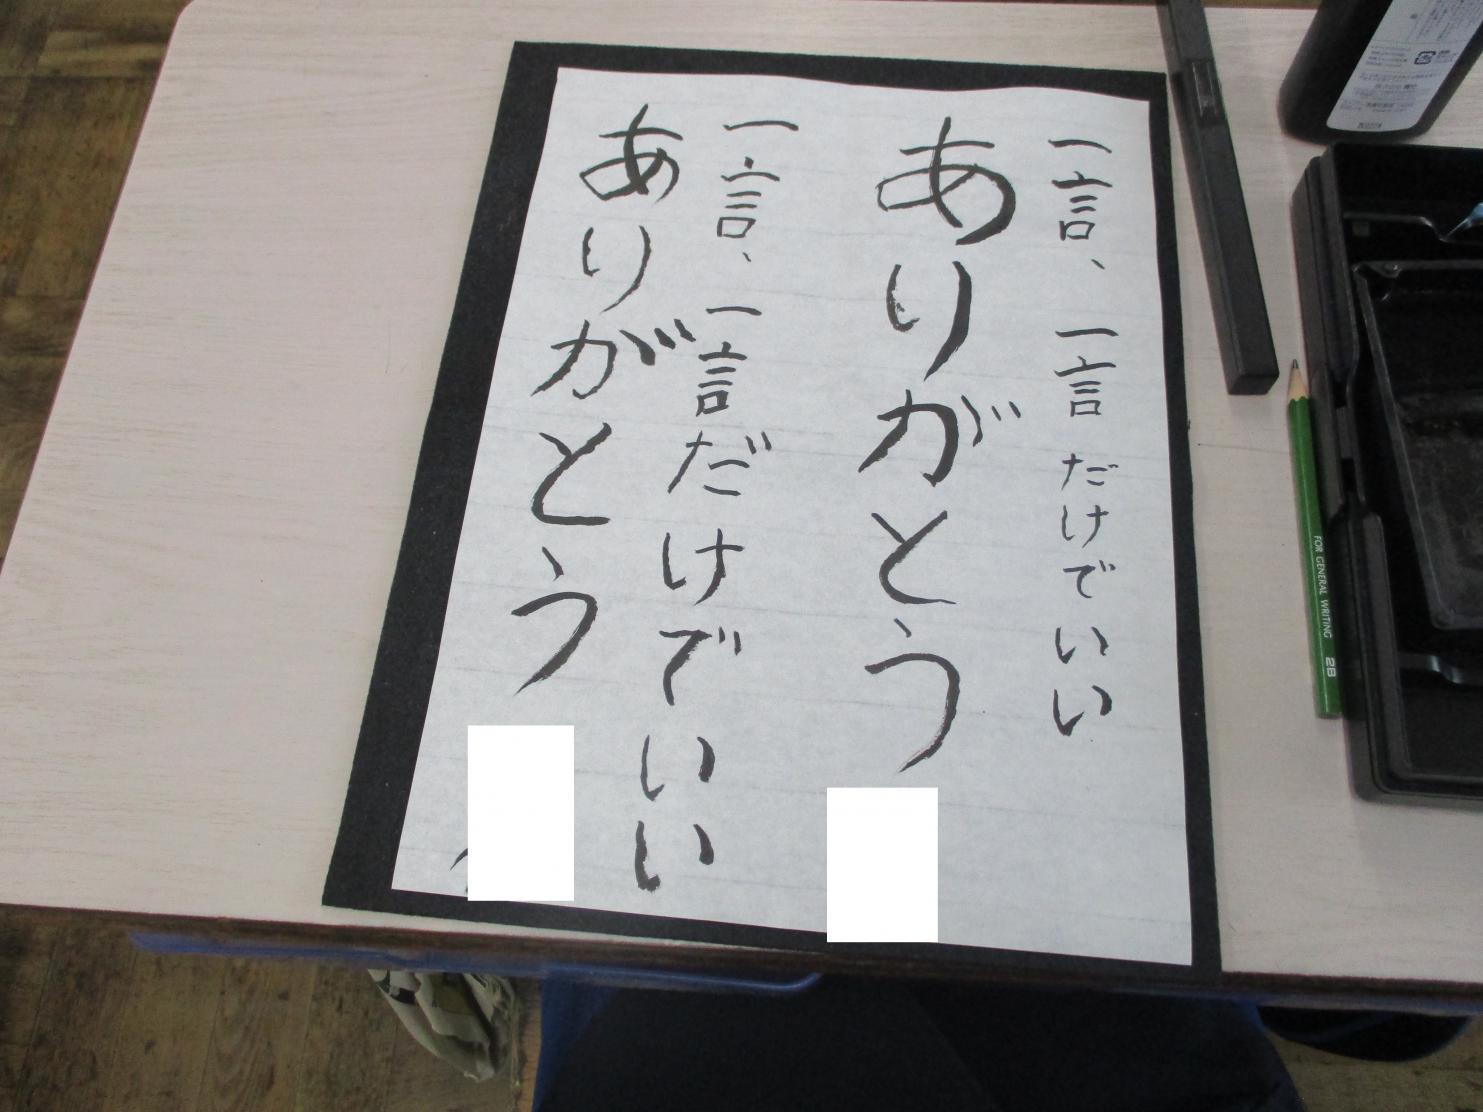 一言、一言だけでいい
ありがとう
一言、一言だけでいい
ありがとう
FOR GENERAL WRITING 2B